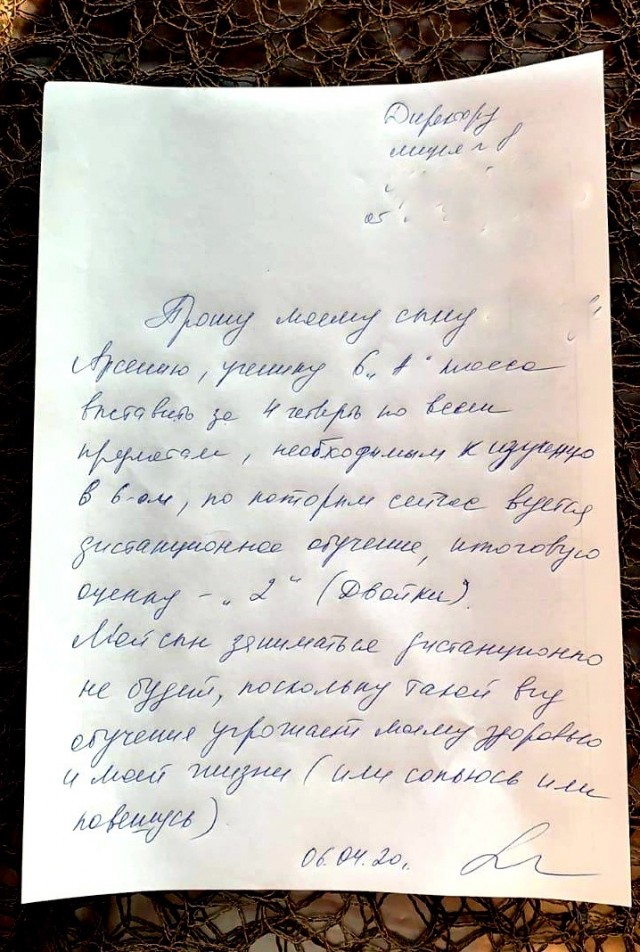 Директору
лицея
от
Прошу моему сыну
Арсению, ученику 6 „А“ класса
выставить за 4 четверть по всем
предметам, необходимым к изучению
в 6-ом, по которым сейчас ведется
дистанционное обучение, итоговую
оценку – „2“ (Двойки).
Мой сын заниматься дистанционно
не будет, поскольку такой вид
обучения угрожает моему здоровью
и моей жизни (или сопьюсь или
повешусь).
06.04.20г.